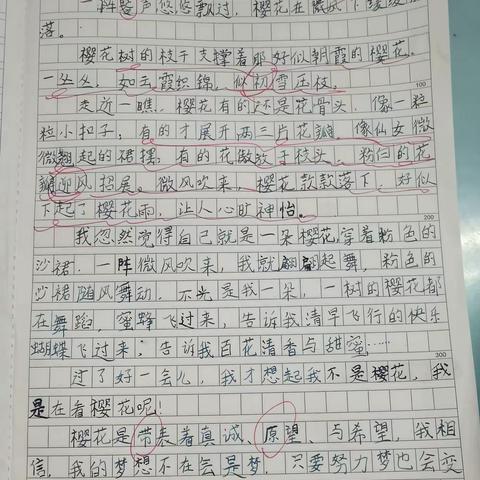 一阵 声悠悠飘过，樱花在微风下缓缓
落。
樱花树的枝干支撑着那好似朝霞的樱花。
一丛丛，如云霞织锦，似初雪压枝。
100
走近一瞧，樱花有的还是花骨头，像一粒
粒小扣子；有的才展开两三片花瓣，像仙女微
微翘起的裙摆；有的花傲放于枝头，粉白的花
瓣迎风招展。微风吹来，樱花款款落下，好似
下起了樱花雨，让人心旷神怡。
200
我忽然觉得自己就是一朵樱花，穿着粉色的
沙裙，一阵微风吹来，我就翩翩起舞，粉色的
沙裙随风舞动，不光是我一朵，一树的樱花都
在舞蹈，蜜蜂飞过来，告诉我清早飞行的快乐
蝴蝶飞过来；告诉我百花清香与甜蜜……
300
过了好一会儿，我才想起我不是樱花，我
是在看樱花呢！
樱花是带表着真诚、原望、与希望，我相
信，我的梦想不在会是梦，只要努力梦也会变